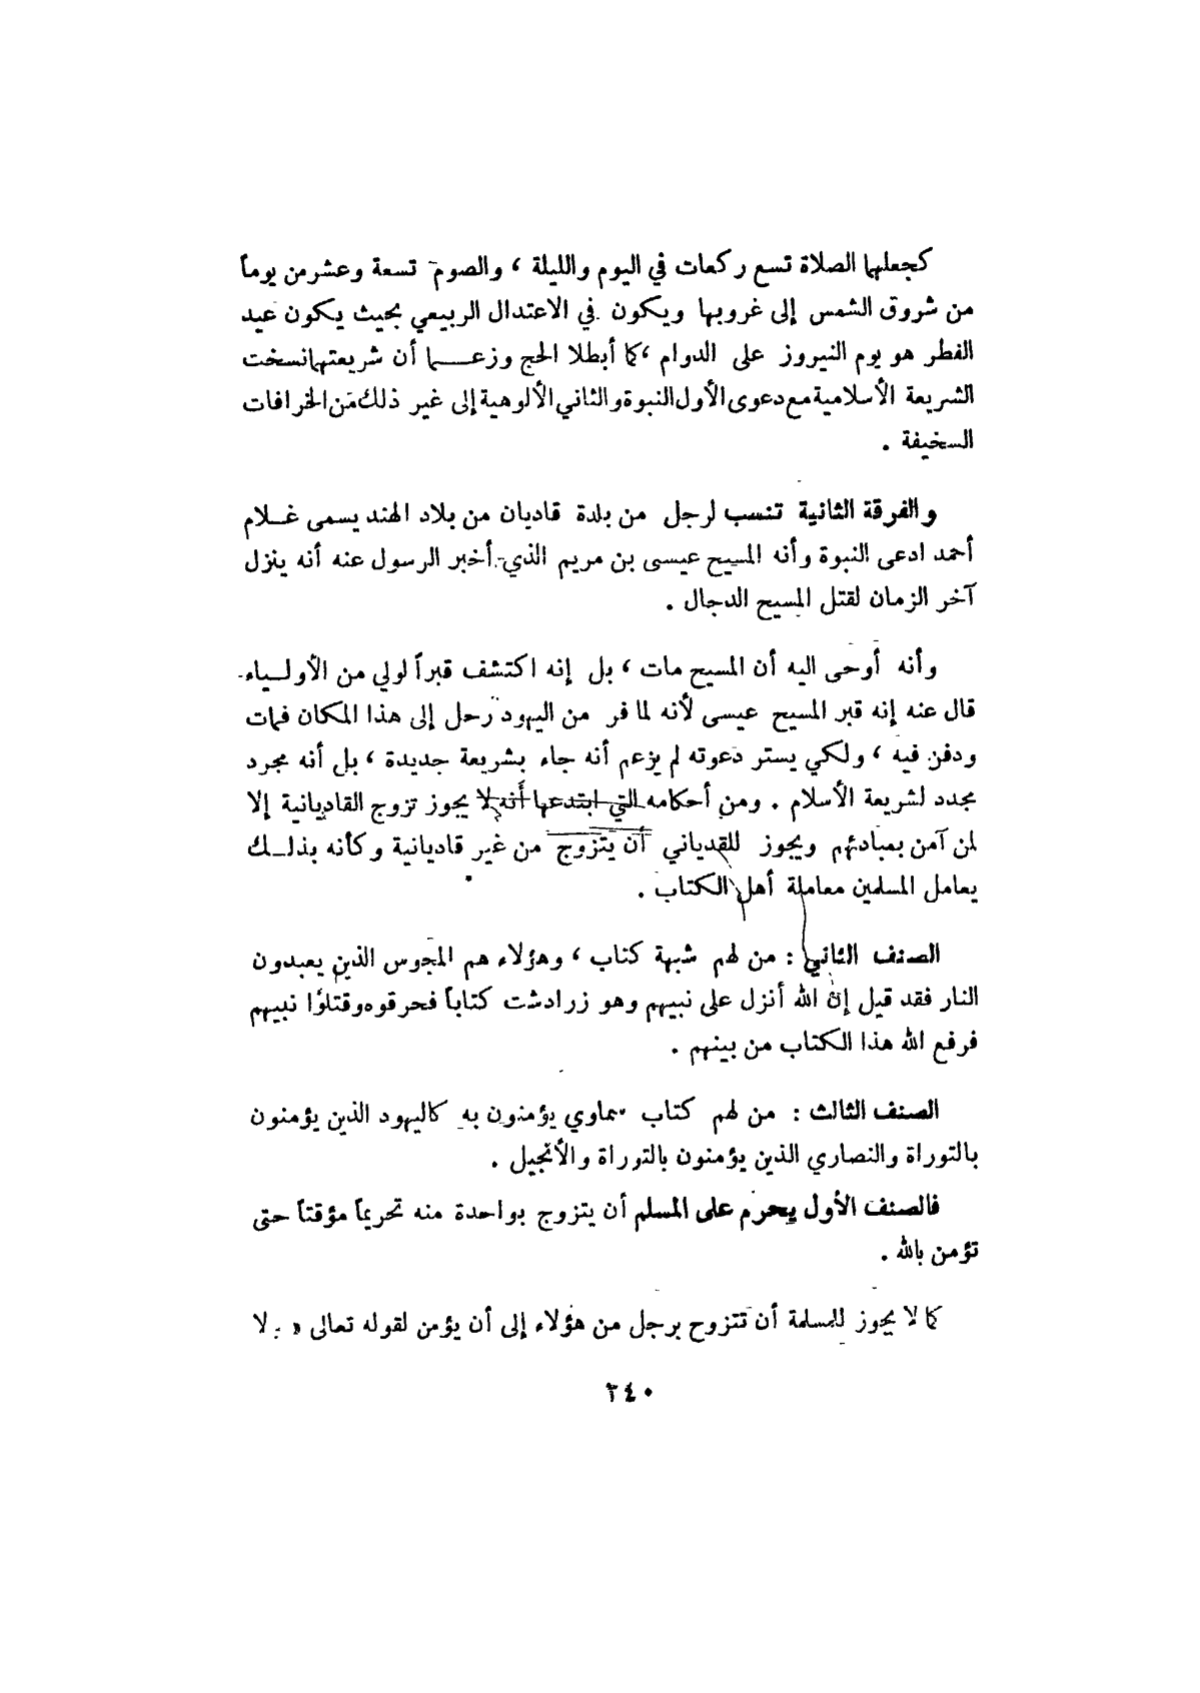 كجعلهما الصلاة تسع ركعات في اليوم والليلة ، والصوم تسعة وعشرمن يوماً
من شروق الشمس إلى غروبها ويكون في الاعتدال الربيعي بحيث يكون عيد
الفطر هو يوم النيروز على الدوام ، كما أبطلا الحج وزعـــما أن شريعتهما نسخت
الشريعة الأسلامية مع دعوى الأول النبوة والثاني الألوهية إلى غير ذلك من الخرافات
السخيفة .
والفرقة الثانية تنسب لرجل من بلدة قاديان من بلاد الهند يسمى غـلام
أحمد ادعى النبوة وأنه المسيح عيسى بن مريم الذي أخبر الرسول عنه أنه ينزل
آخر الزمان لقتل المسيح الدجال .
وأنه أوحى اليه أن المسيح مات ، بل إنه اكتشف قبراً لولي من الأولـياء
قال عنه إنه قبر المسيح عيسى لأنه لما فر من اليهود رحل إلى هذا المكان فمات
ودفن فيه ، ولكي يستر دعوته لم يزعم أنه جاء بشريعة جديدة ، بل أنه مجرد
مجدد لشريعة الأسلام . ومن أحكامه التي ابتدعها أنه لا يجوز تزوج القاديانية إلا
لمن آمن بمبادئهم ويجوز للقدياني أن يتزوج من غير قاديانية وكأنه بذلـك
يعامل المسلمين معاملة أهل الكتاب .
الصنف الثاني : من لهم شبهة كتاب ، وهؤلاء هم المجوس الذين يعبدون
النار فقد قيل إن الله أنزل على نبيهم وهو زرادشت كتاباً فحرقوه وقتلوا نبيهم
فرفع الله هذا الكتاب من بينهم .
الصنف الثالث : من لهم كتاب سماوي يؤمنون به كاليهود الذين يؤمنون
بالتوراة والنصاري الذين يؤمنون بالتوراة والأنجيل .
فالصنف الأول يحرم على المسلم أن يتزوج بواحدة منه تحريماً مؤقتاً حتى
تؤمن بالله .
كما لا يجوز للمسلمة أن تتزوج برجل من هؤلاء إلى أن يؤمن لقوله تعالى « ولا
٢٤٠